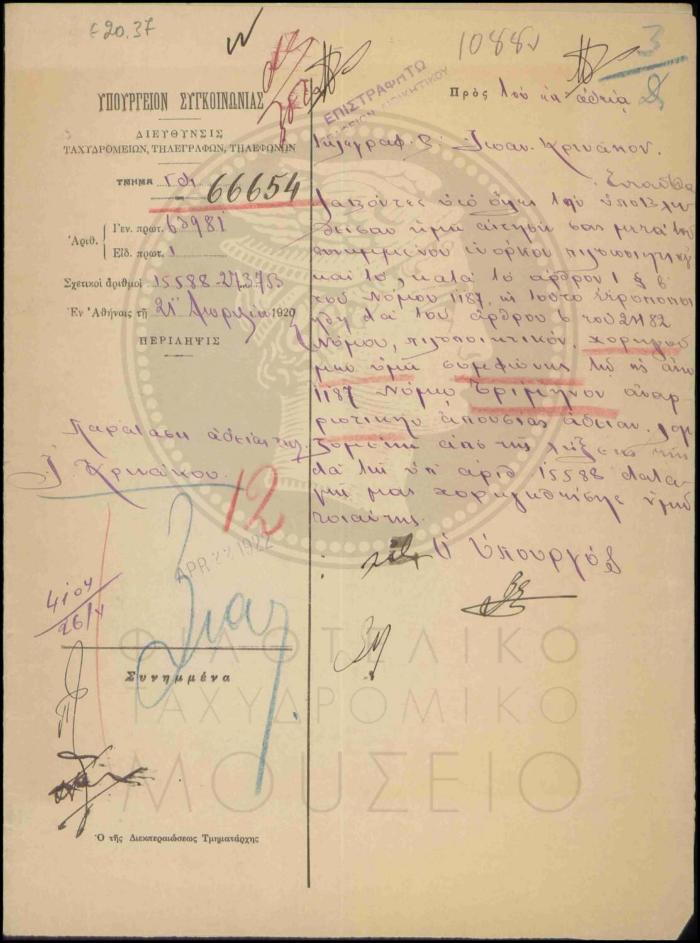 ε20.37
1088
3
ΥΠΟΥΡΓΕΙΟΝ ΣΥΓΚΟΙΝΩΝΙΑΣ
ΔΙΕΥΘΥΝΣΙΣ
ΤΑΧΥΔΡΟΜΕΙΩΝ, ΤΗΛΕΓΡΑΦΩΝ, ΤΗΛΕΦΩΝΩΝ
ΤΜΗΜΑ
66654
Ἀριθ. Γεν. πρωτ. 60981
Εἰδ. πρωτ. 1
Σχετικοὶ ἀριθμοὶ 15588-273753
Ἐν Ἀθήναις τῇ 21 Ἀπριλίου 1920
ΠΕΡΙΛΗΨΙΣ
Παράτασις ἀδείας τηλ.
Ι. Κρινάκου.
12
APR 22 1922
26/
Συνημμένα
Ὁ τῆς Διεκπεραιώσεως Τμηματάρχης
ΕΠΙΣΤΡΑΦΗΤΩ
Πρὸς τὸν ἐν ἀδείᾳ
τηλεγραφ. Β. Ἰωαν. Κρινάκον.
Ἐνταῦθα
Λαβόντες ὑπ' ὄψει τὴν ὑποβλη
θεῖσαν ἡμῖν αἴτησίν σας μετὰ τοῦ
συνημμένου ἐνόρκου πιστοποιητικοῦ
καὶ τό, κατὰ τὸ ἄρθρον 1 § β
τοῦ Νόμου 1187, ὡς τοῦτο ἐτροποποι
ήθη διὰ τοῦ ἄρθρου 6 τοῦ 2182
Νόμου, πιστοποιητικόν, χορηγοῦ
μεν ὑμῖν συμφώνως τῷ
1187 Νόμῳ τρίμηνον ἀναρ
ρωτικὴν ἀπουσίας ἄδειαν, λογι
ζομένην ἀπὸ τῆς λήξεως τῆς
διὰ τῆς ὑπ' ἀριθ 15588 διατα
γῆς μας χορηγηθείσης ὑμῖν
τοιαύτης.
Ὁ Ὑπουργός
ΦΙΛΟΤΕΛΙΚΟ
ΤΑΧΥΔΡΟΜΙΚΟ
ΜΟΥΣΕΙΟ